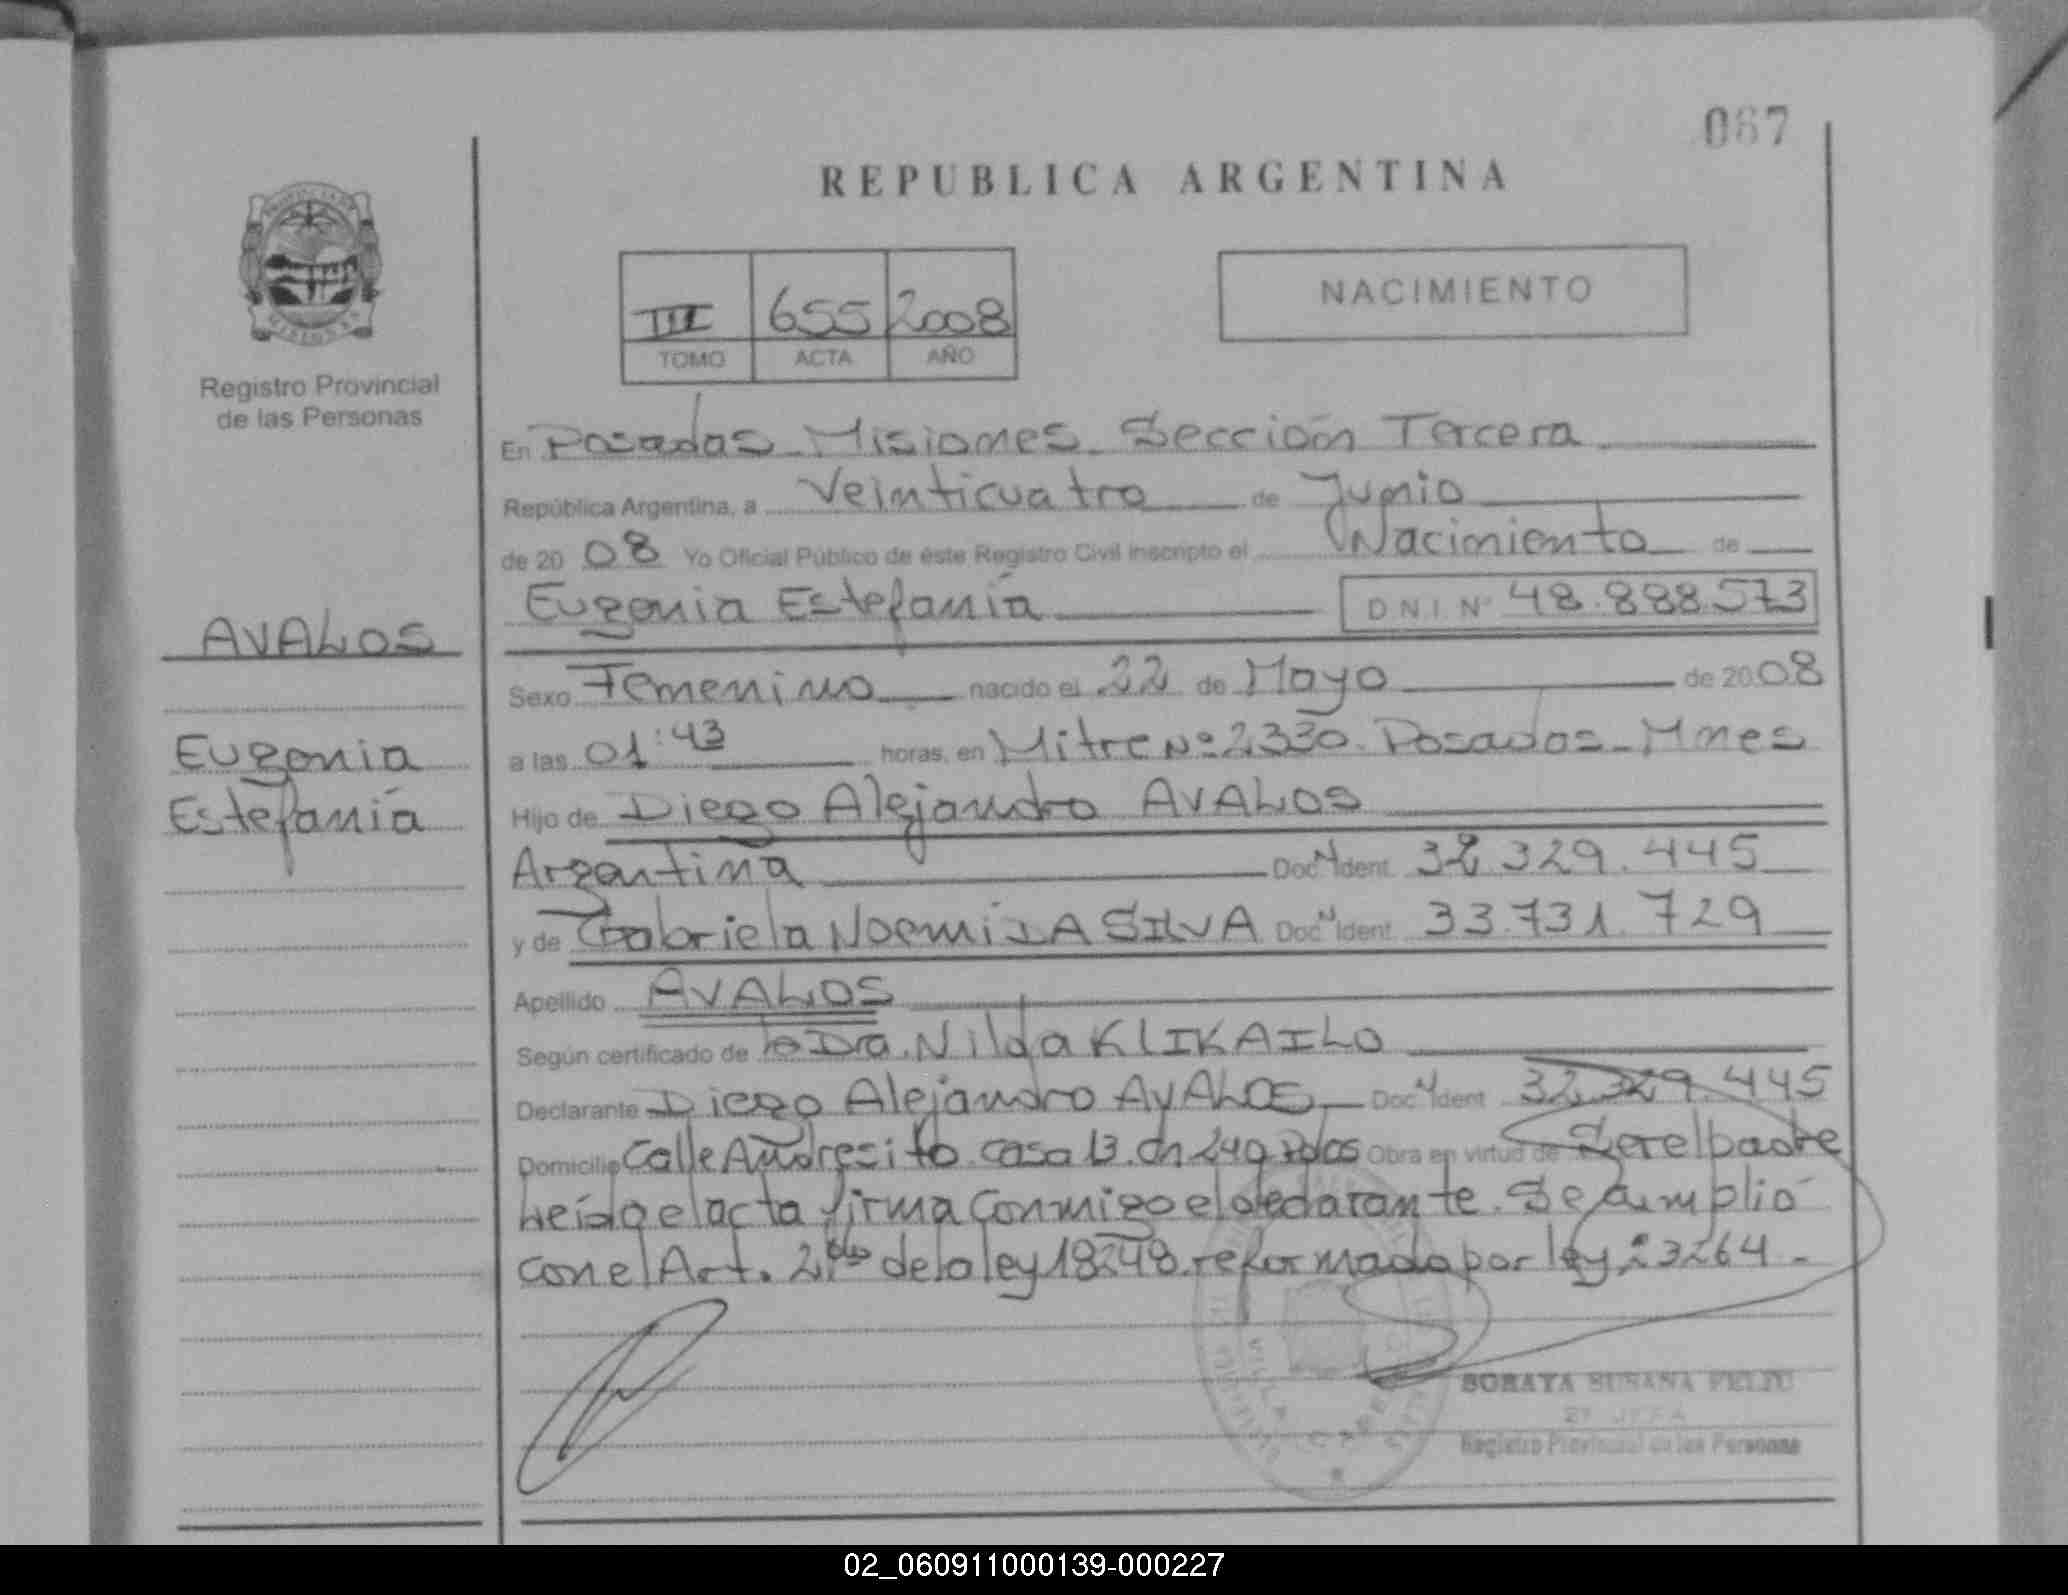 067
REPUBLICA ARGENTINA
NACIMIENTO
III 655 2008
TOMO ACTA AÑO
Registro Provincial
de las Personas
En Posadas Misiones Sección Tercera
República Argentina, a Veinticuatro de Junio
de 20 08 Yo Oficial Público de éste Registro Civil inscripto el Nacimiento de
Eugenia Estefanía D.N.I. Nº 48.888.573
AVALOS
Eugenia
Estefanía
Sexo Femenino nacido el 22 de Mayo de 2008
a las 01:43 horas, en Mitre Nº 2330. Posadas - Mnes
Hijo de Diego Alejandro AVALOS
Argentina Doc N Ident. 32.329.445
y de Gabriela Noemi DA SILVA Doc N Ident. 33.731.729
Apellido AVALOS
Según certificado de la Dra. Nilda KLIKAILO
Declarante Diego Alejandro AVALOS Doc N Ident 32.329.445
Domicilio Calle Andresito casa 13. ch 249 Pdas Obra en virtud de Ser el padre
Leída el acta firma conmigo el declarante. Se cumplió
con el Art. 2do de la ley 18248 reformado por ley 23264 -
SORAYA SUSANA FELIU
Registro Provincial de las Personas
02_060911000139-000227